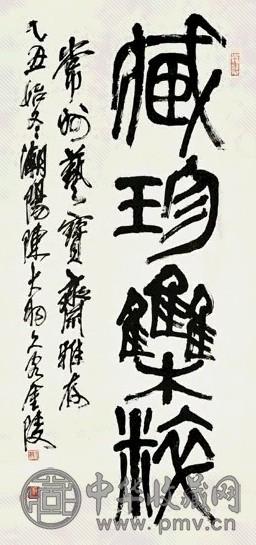 藏珍集粹
常州藝寶齋雅存
乙丑始冬潮陽陳大羽久客金陵
中华收藏网
www.pmv.cn